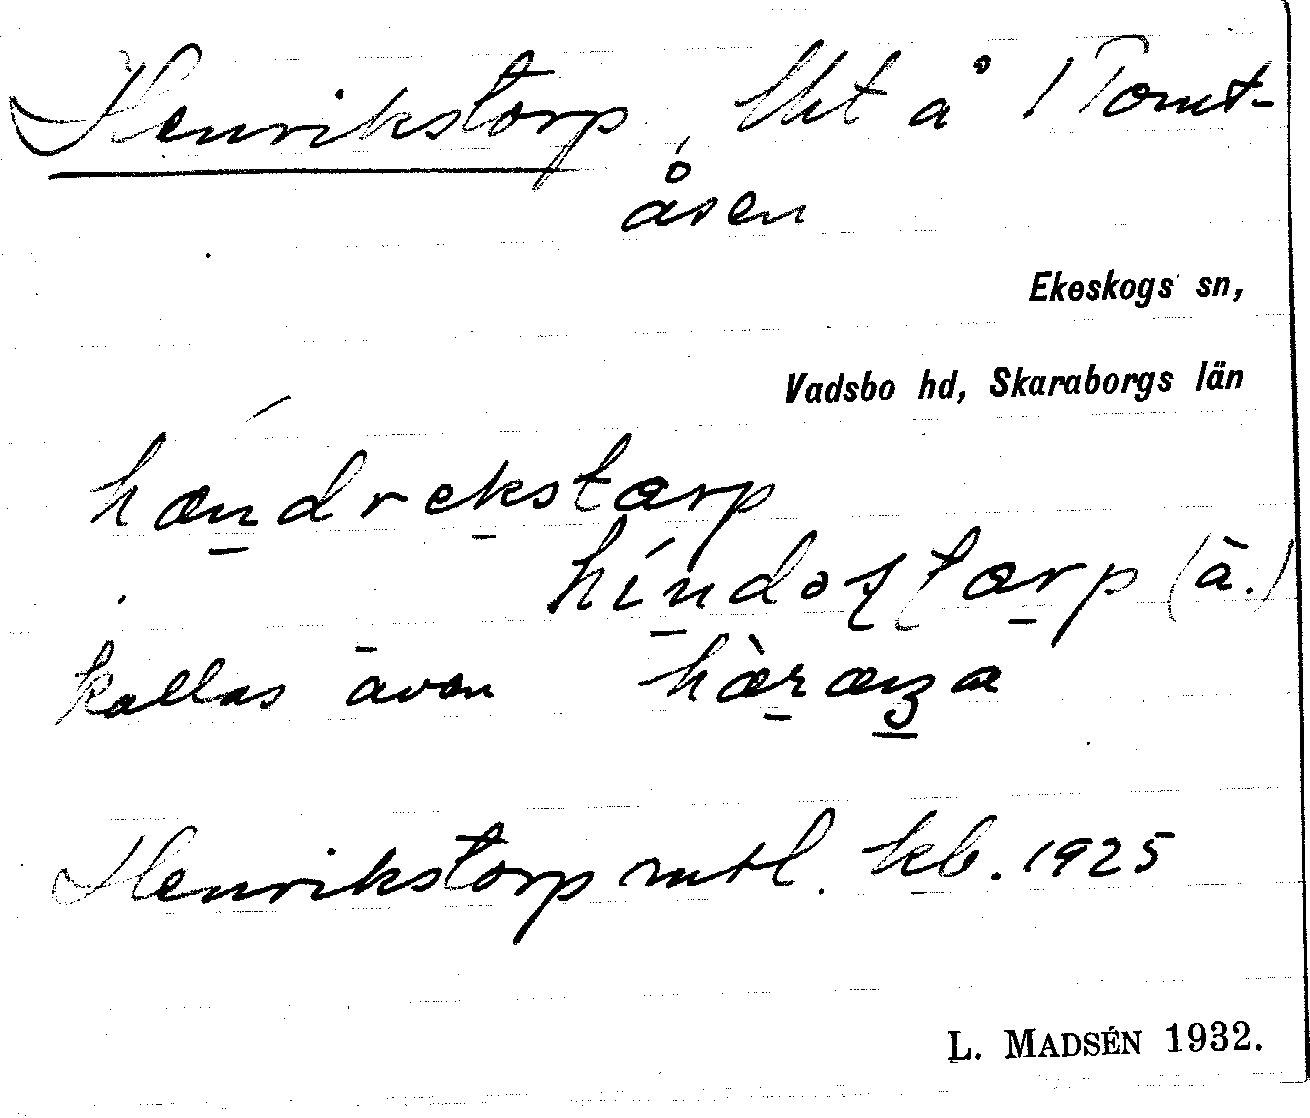 Henrikstorp, lht å 1 Tomt-
åsen
Ekeskogs sn,
Vadsbo hd, Skaraborgs län
hændrekstærp
híndəstærp (ä.)
kallas även hæ̀ræŋa
Henrikstorp mtl. kb. 1925
L. MADSÉN 1932.